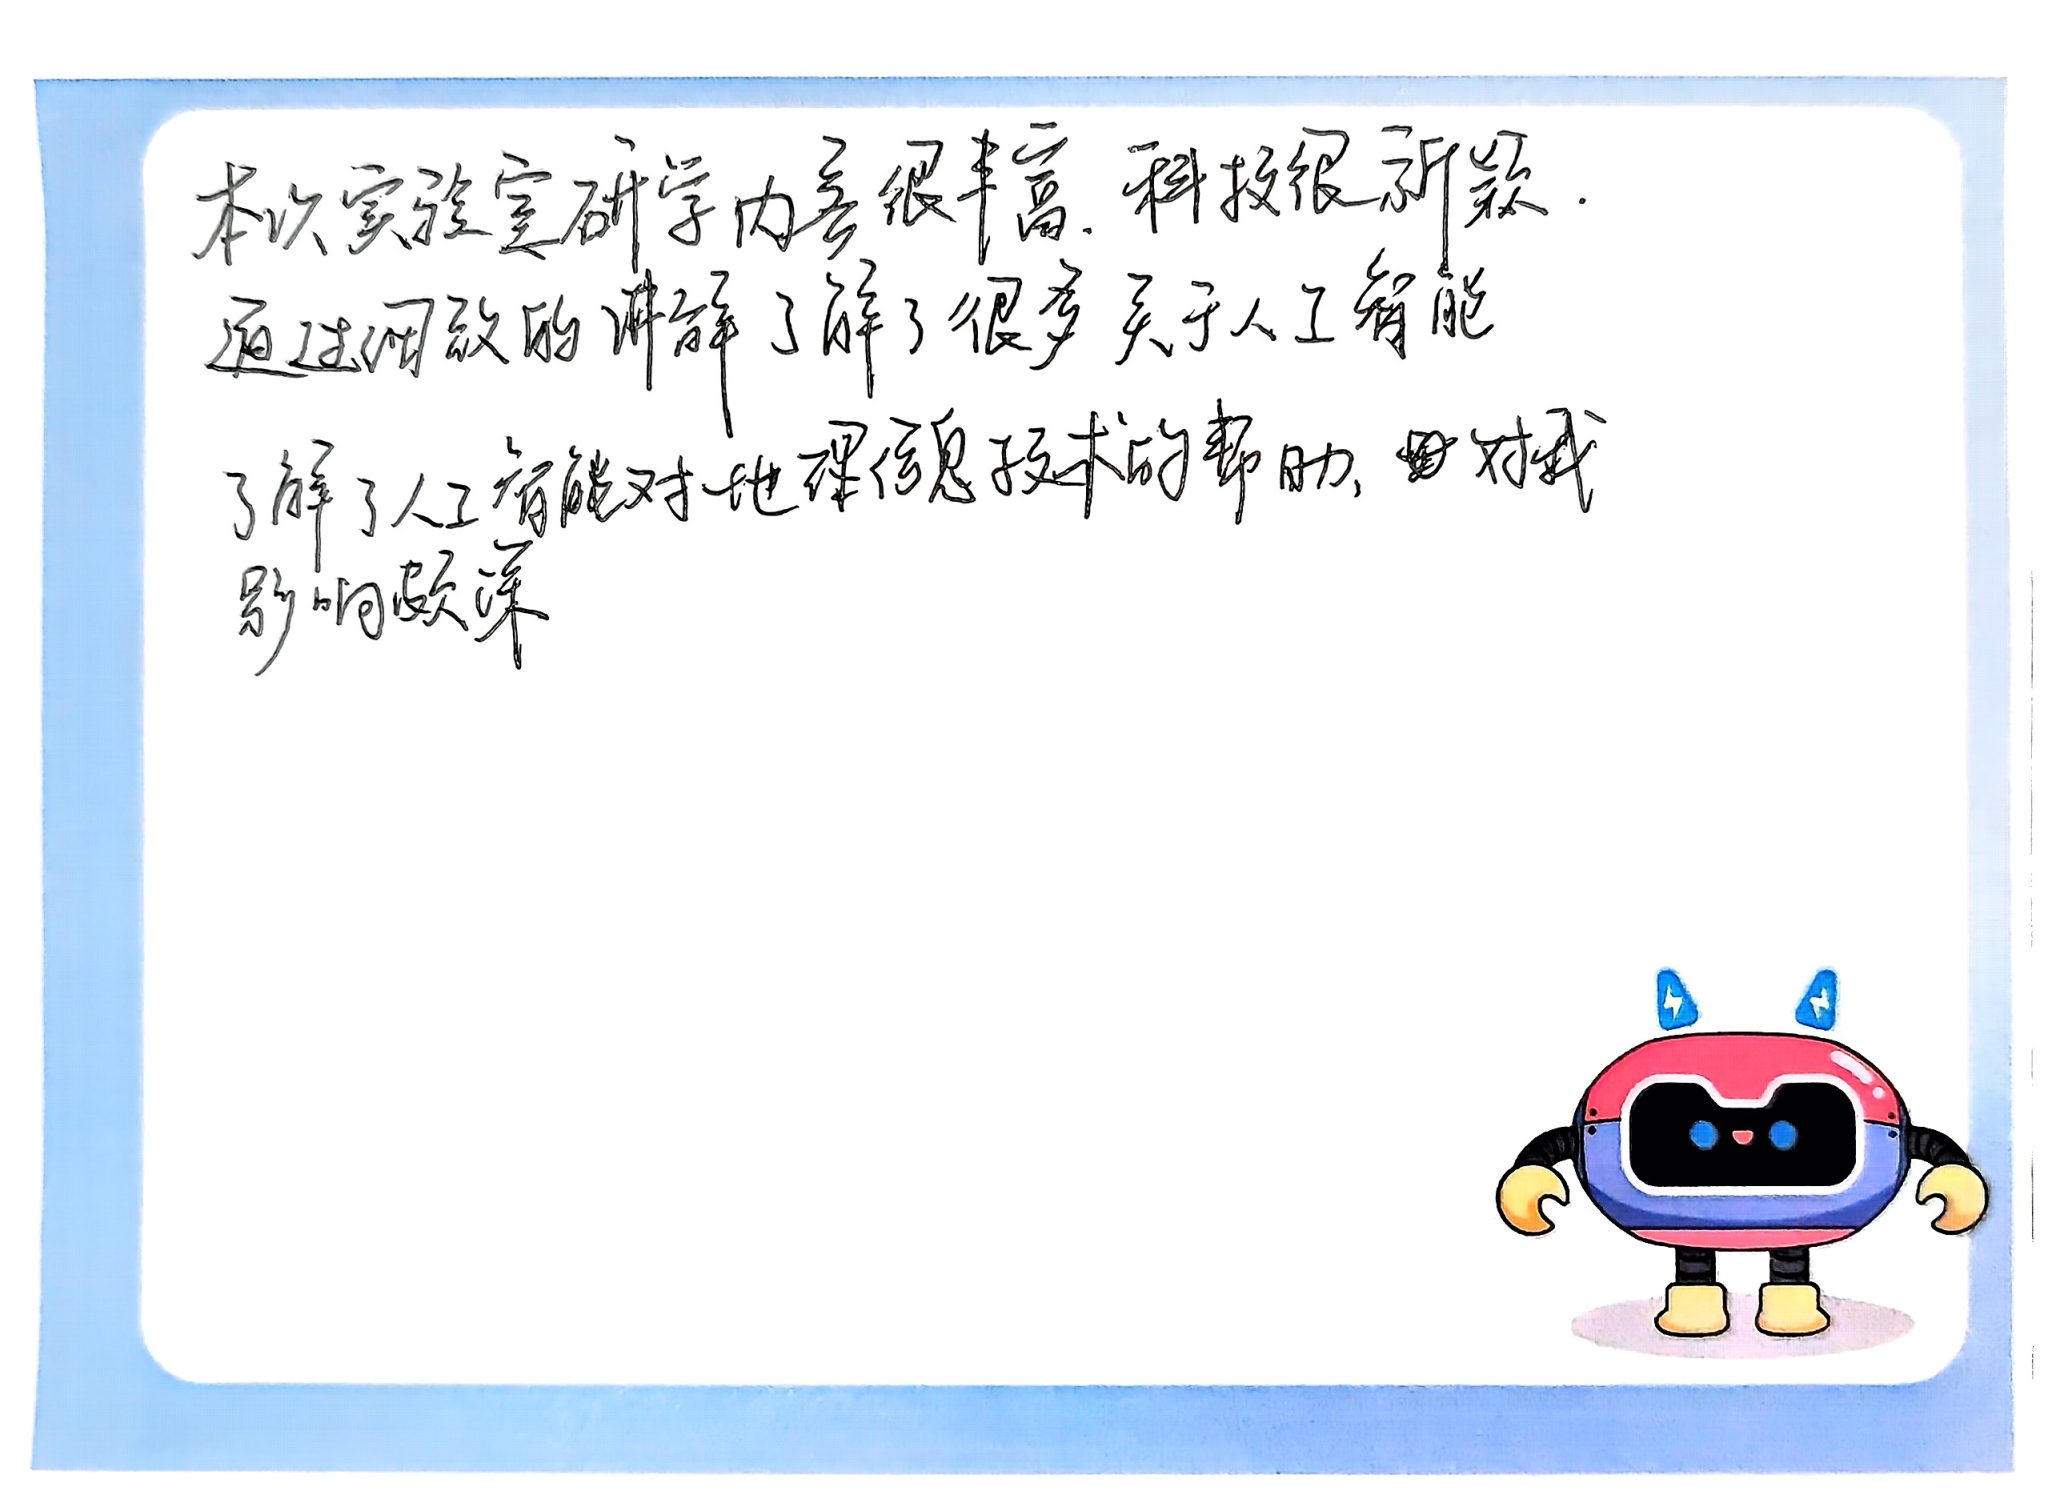 本次实验室研学内容很丰富.科技很新颖.
通过细致的讲解了解了很多关于人工智能
了解了人工智能对地理信息技术的帮助,对我
影响颇深